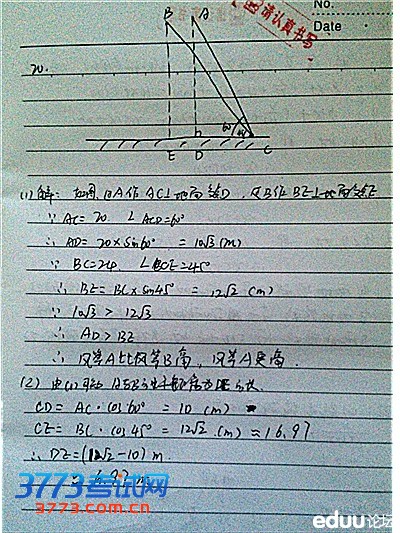 No.
Date
请认真书写
B A
20.
60°
E D C
(1) 解: 如图, 过A作AC⊥地面于D, 过B作BE⊥地面于E
∵ AC=20, ∠ACD=60°
∴ AD=20×sin60° =10√3 (m)
∵ BC=24, ∠BCE=45°
∴ BE=BC×sin45° =12√2 (m)
∵ 10√3 > 12√3
∴ AD>BE
∴ 风筝A比风筝B高, 风筝A更高.
(2) 由(1)可知
CD= AC·cos60° =10 (m)
CE= BC·cos45° =12√2 (m) ≈16.97
∴ DE=(12√2-10) m
≈ 6.97 m
3773考试网
3773.com.cn
eduu论坛